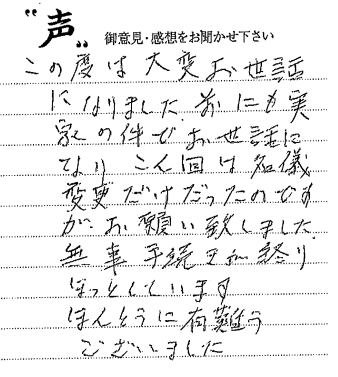 “声”
御意見・感想をお聞かせ下さい
この度は大変お世話
になりました。前にも実
家の件でお世話に
なり こん回は名儀
変更だけだったのです
が、お願い致しました。
無事手続きが終り
ほっとしています
ほんとうに有難う
ございました